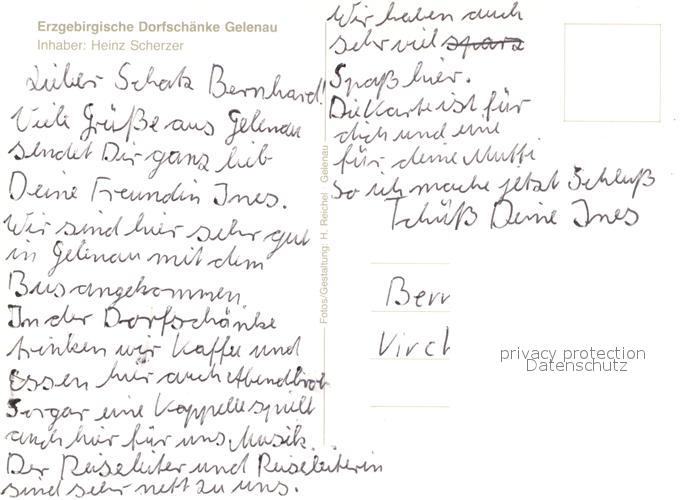 Erzgebirgische Dorfschänke Gelenau
Inhaber: Heinz Scherzer
Lieber Schatz Bernhard!
Viele Grüße aus Gelenau
sendet Dir ganz lieb
Deine Freundin Ines.
Wir sind hier sehr gut
in Gelenau mit dem
Bus angekommen.
In der Dorfschänke
trinken wir Kaffee und
Essen hier auch Abendbrot
Sorgar eine Kappelle spielt
auch hier für uns Musik.
Der Reiseleiter und Reiseleiterin
sind sehr nett zu uns.
Wir haben auch
sehr viel spars
Spaß hier.
Die Karte ist für
dich und eine
für deine Mutti
so ich mache jetzt Schluß
Tchüß Deine Ines
Fotos/Gestaltung: H. Reichel Gelenau
Berr
Virch
privacy protection
Datenschutz